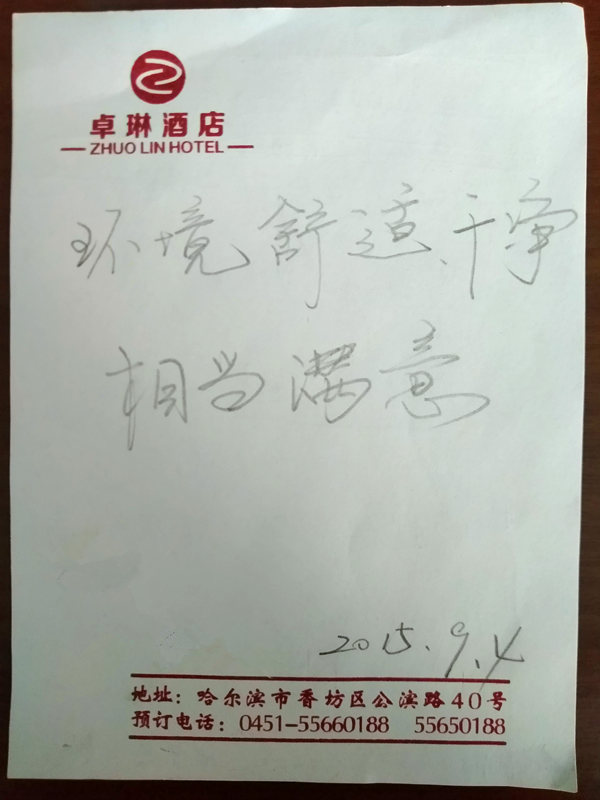 卓琳酒店
ZHUO LIN HOTEL
环境舒适、干净
相当满意
2015.9.4
地址：哈尔滨市香坊区公滨路40号
预订电话：0451-55660188 55650188